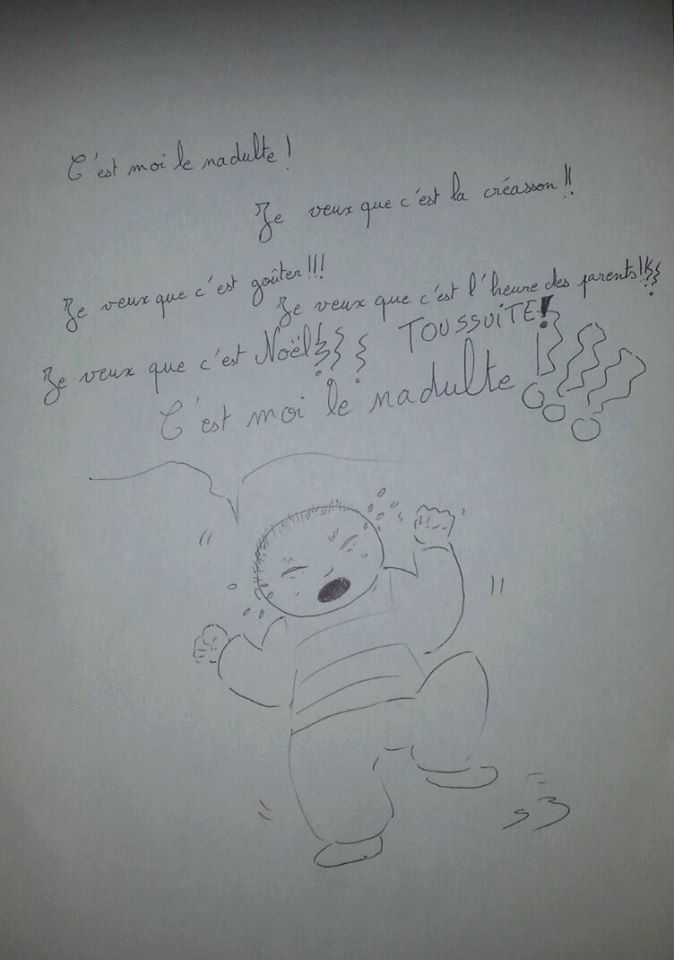 C'est moi le nadulte !
Je veux que c'est la créasson !!
Je veux que c'est goûter !!!
Je veux que c'est l'heure des parents !!
Je veux que c'est Noël !
TOUSSUITE !
C'est moi le nadulte !